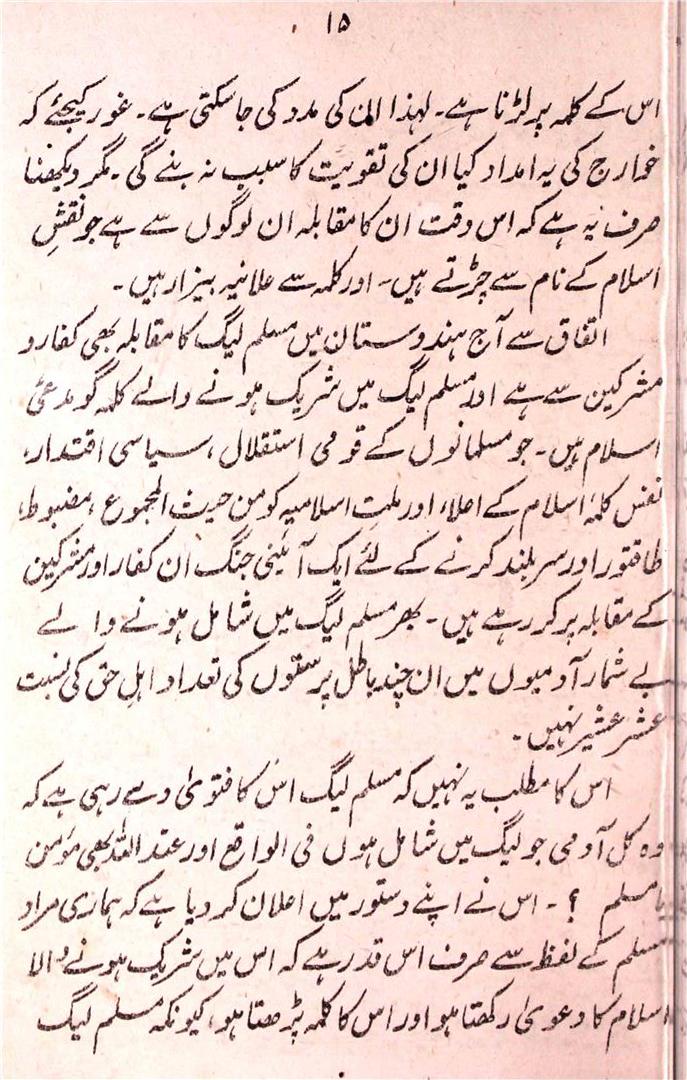 ۱۵
اس کے کلمہ پر لڑنا ہے۔ لہذا ان کی مدد کی جا سکتی ہے۔ غور کیجئے کہ
خوارج کی یہ امداد کیا ان کی تقویت کا سبب نہ بنے گی۔ مگر دیکھنا
صرف یہ ہے کہ اس وقت ان کا مقابلہ ان لوگوں سے ہے جو نفسِ
اسلام کے نام سے چڑتے ہیں۔ اور کلمہ سے علانیہ بیزار ہیں۔
اتفاق سے آج ہندوستان میں مسلم لیگ کا مقابلہ بھی کفار و
مشرکین سے ہے اور مسلم لیگ میں شریک ہونے والے کلمہ گو مدعئ
اسلام ہیں۔ جو مسلمانوں کے قومی استقلال، سیاسی اقتدار،
نفس کلمۂ اسلام کے اعلاء اور ملتِ اسلامیہ کو من حیث المجموع، مضبوط،
طاقتور اور سربلند کرنے کے لئے ایک آئینی جنگ ان کفار اور مشرکین
کے مقابلہ پر کر رہے ہیں۔ پھر مسلم لیگ میں شامل ہونے والے
بے شمار آدمیوں میں ان چند باطل پرستوں کی تعداد اہل حق کی نسبت
عشر عشیر نہیں۔
اس کا مطلب یہ نہیں کہ مسلم لیگ اس کا فتویٰ دے رہی ہے کہ
وہ کل آدمی جو لیگ میں شامل ہوں فی الواقع اور عند اللہ بھی مؤمن
یا مسلم ؟۔ اس نے اپنے دستور میں اعلان کر دیا ہے کہ ہماری مراد
مسلم کے لفظ سے صرف اس قدر ہے کہ اس میں شریک ہونے والا
اسلام کا دعویٰ رکھتا ہو اور اس کا کلمہ پڑھتا ہو، کیونکہ مسلم لیگ